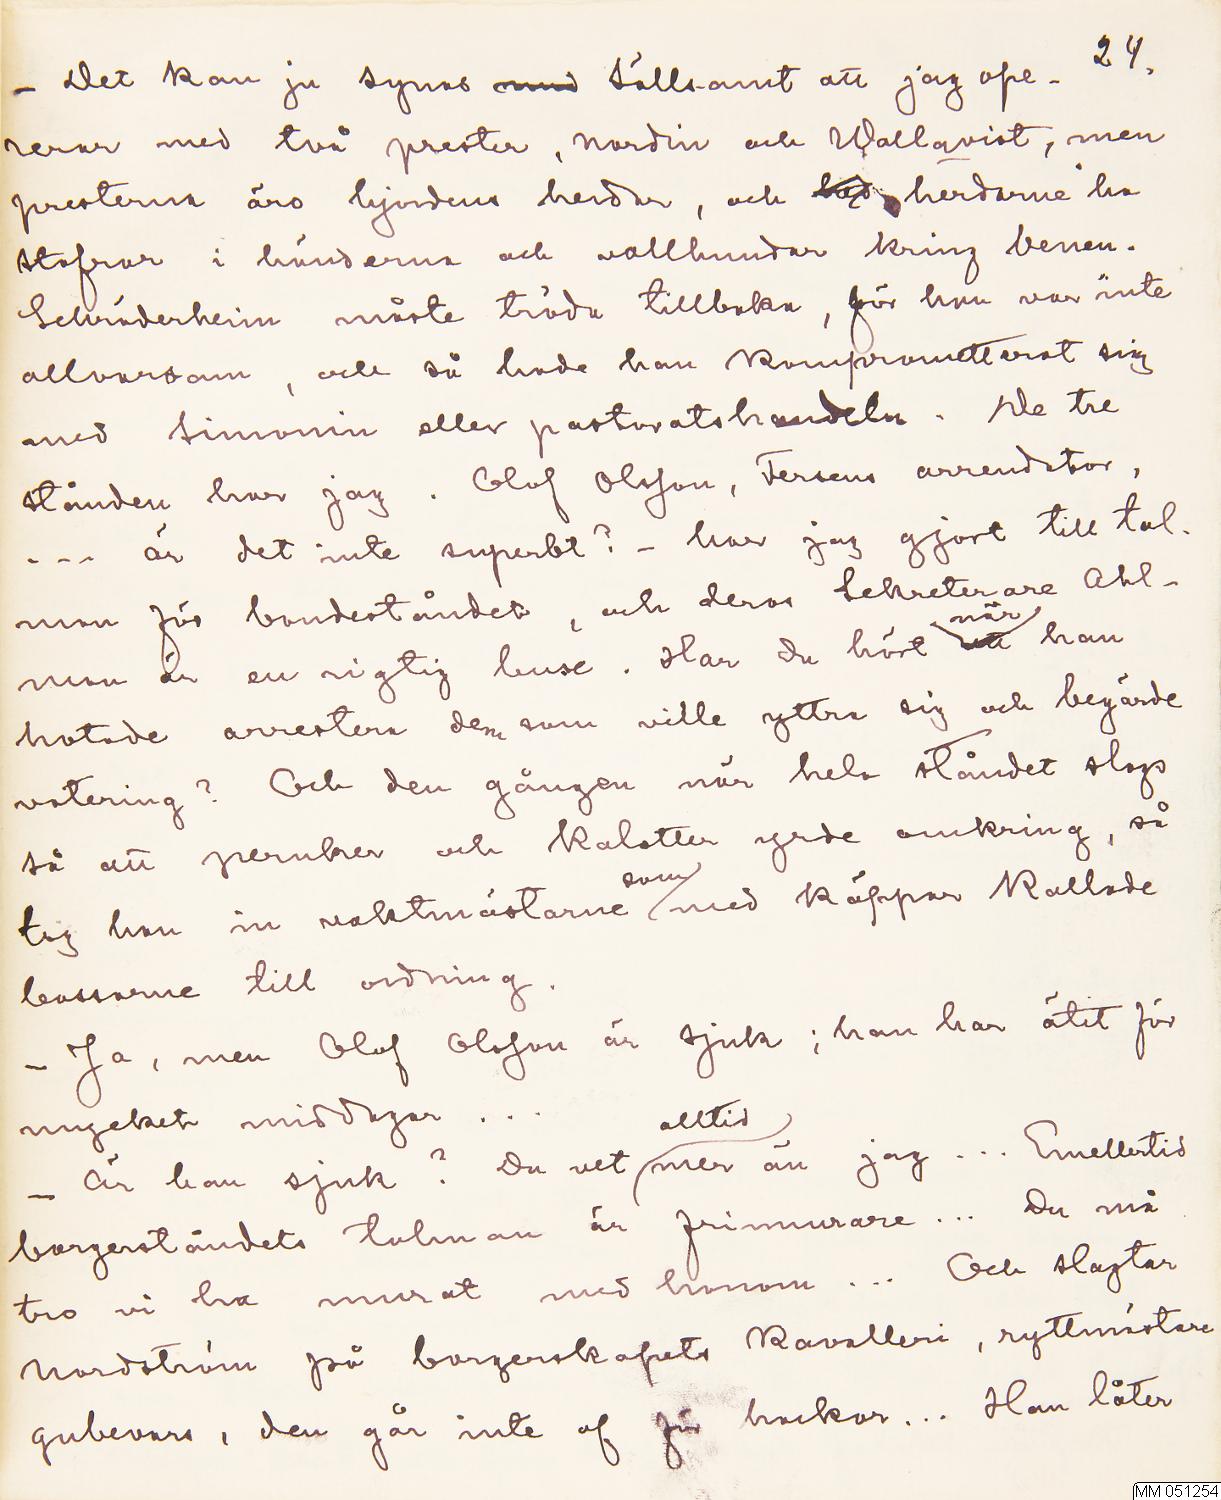 24.
- Det kan ju synas med sällsamt att jag ope-
rerar med två prester, Nordin och Wallqvist, men
presterna äro hjordens herdar, och herdarne ha
stafvar i händerna och vallhundar kring benen.
Schröderheim måste träda tillbaka, för han var inte
allvarsam, och så hade han komprometterat sig
med Simonin eller pastoratshandeln. De tre
stånden har jag. Olof Olsson, Fersens arrendator,
--- är det inte superbt? - har jag gjort till tal-
man för bondeståndet, och deras Sekreterare Ahl-
man är en rigtig buse. Har du hört när att han
hotade arrestera dem som ville yttra sig och begärde
votering? Och den gången när hela ståndet slogs
så att peruker och kalotter yrde omkring, så
tog han in vaktmästarne som med käppar kallade
bassarne till ordning.
- Ja, men Olof Olsson är sjuk; han har ätit för
mycket middagar ...
- Är han sjuk? Du vet alltid mer än jag ... Emellertid
borgerståndets talman är frimurare ... Du må
tro vi ha murat med honom ... Och slagtar
Nordström på borgerskapets Kavalleri, ryttmästare
gubevars, den går inte af för hackor ... Han låter
MM 051254